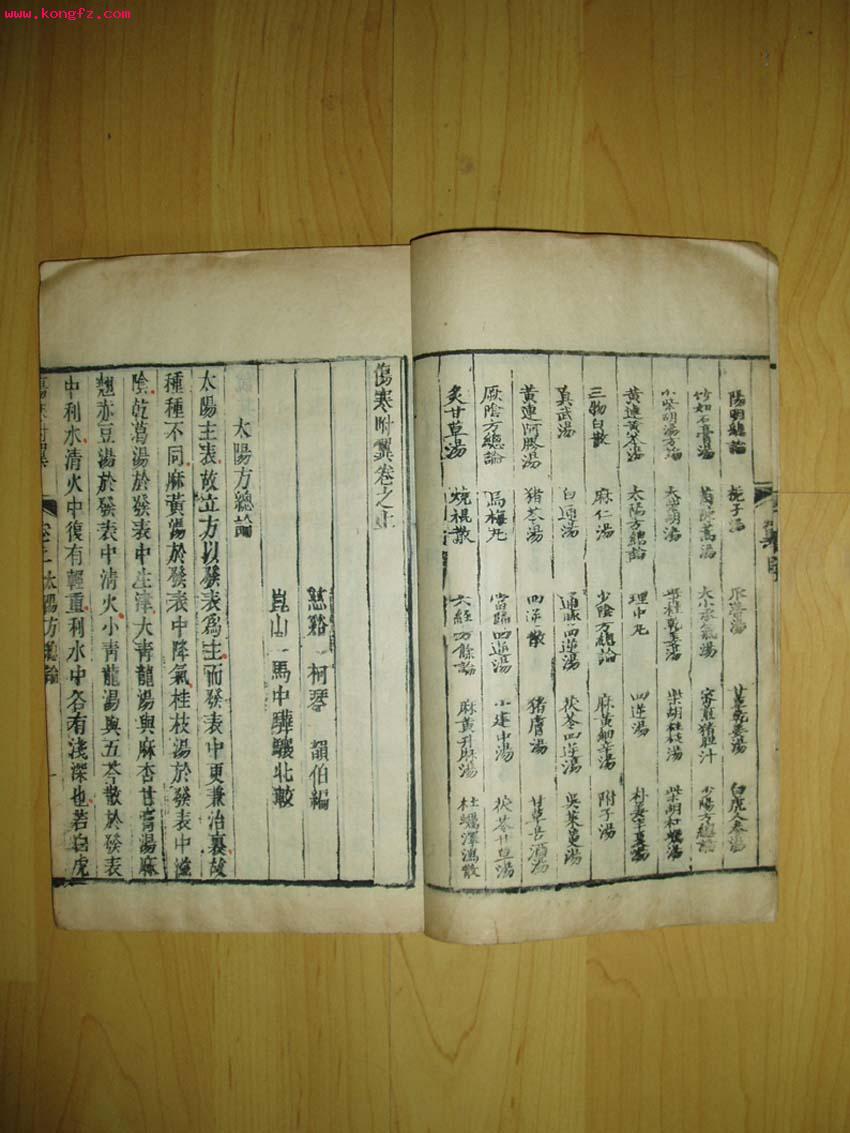 www.kongfz.com
陽明總論 梔子湯 甘草乾姜湯 白虎人參湯
竹如石膏湯 大小承氣湯 蜜煎猪胆汁 少陽方總論
小柴胡湯方論 大柴胡湯 柴桂乾姜湯 柴胡桂枝湯
黄連黄芩湯 太陽方總論 理中丸 四逆湯
三物白散 麻仁湯 少陰方總論 麻黄細辛湯 附子湯
真武湯 白通湯 通脉四逆湯 茯苓四逆湯 吳茱萸湯
黄連阿膠湯 猪苓湯 四逆散 猪膚湯 甘草苦酒湯
厥陰方總論 烏梅丸 當歸四逆湯 小建中湯 茯苓甘草湯
炙甘草湯 燒裩散 六經方餘論 麻黄升麻湯 牡蠣澤瀉散
傷寒附翼卷之上
慈谿 柯琴 韻伯編
崑山 馬中驊驤北較
太陽方總論
太陽主表故立方以發表爲主而發表中更兼治裏故
種種不同麻黃湯於發表中降氣桂枝湯於發表中滋
陰乾葛湯於發表中生津大青龍湯與麻杏甘膏湯麻
翹赤豆湯於發表中清火小青龍湯與五苓散於發表
中利水清火中復有輕重利水中各有淺深也若白虎
傷寒附翼 卷上 太陽方總論 一